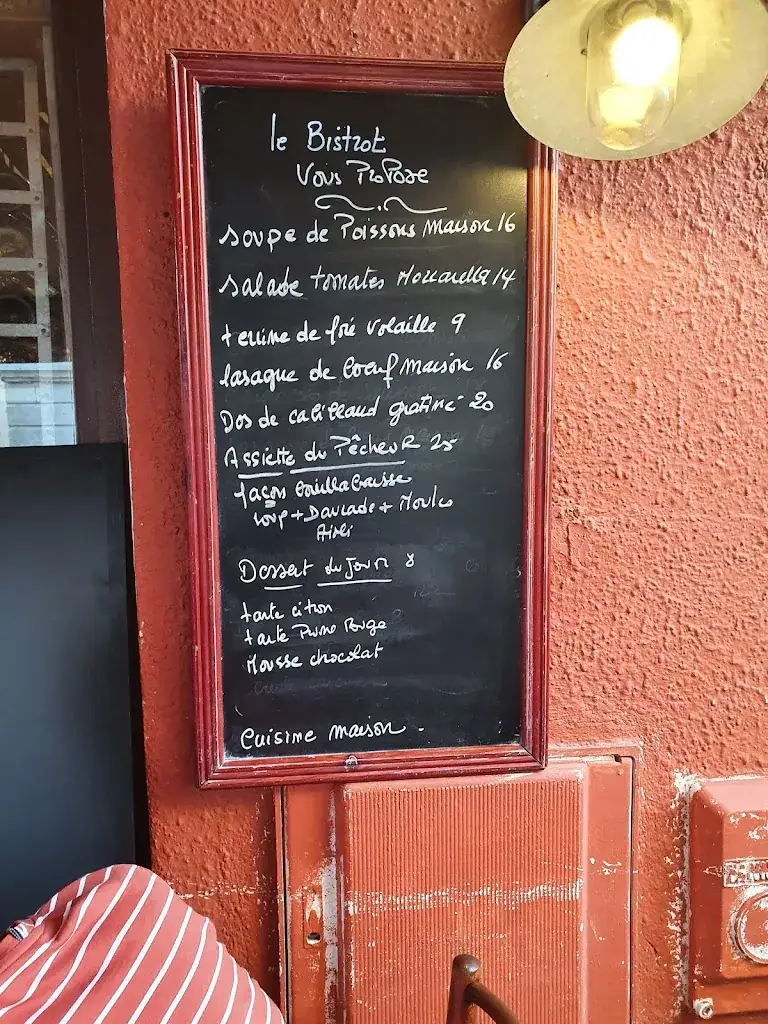 le Bistrot
Vous Propose
soupe de Poissons maison 16
salade tomates Mozzarella 14
terrine de foie volaille 9
lasagne de boeuf maison 16
Dos de cabillaud gratiné 20
Assiette du Pêcheur 25
façon bouillabaisse
Loup + Daurade + Moules
Aioli
Dessert du Jour 8
tarte citron
tarte Prune Rouge
Mousse chocolat
Cuisine maison.